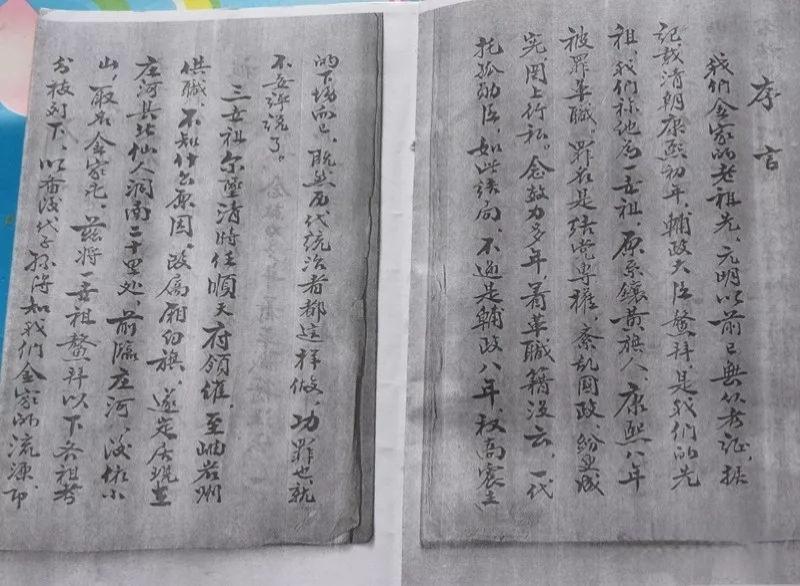 序言
我们金家的老祖先，元明以前已无从考证，据
记载清朝康熙初年，辅政大臣鳌拜，是我们的先
祖，我们称他为一世祖，原系镶黄旗人，康熙八年
被罪革职，罪名是结党专权，紊乱国政，纷更成
宪，罔上行私。念效力多年，着革职籍没云，一代
托孤功臣，如此结局，不过是辅政八年，权高震主
的下场而已，既然历代统治者都这样做，功罪也就
不必评说了。
三世祖尔 清时任顺天府领催，至岫岩州
供职，不知什么原因，改为厢白旗，遂定居现在
庄河县北仙人洞南二十里处，前临庄河，后依小
山，取名金家屯，兹将一世祖鳌拜以下各祖考
名披列下，以备后代子孙得知我们金家的流源，